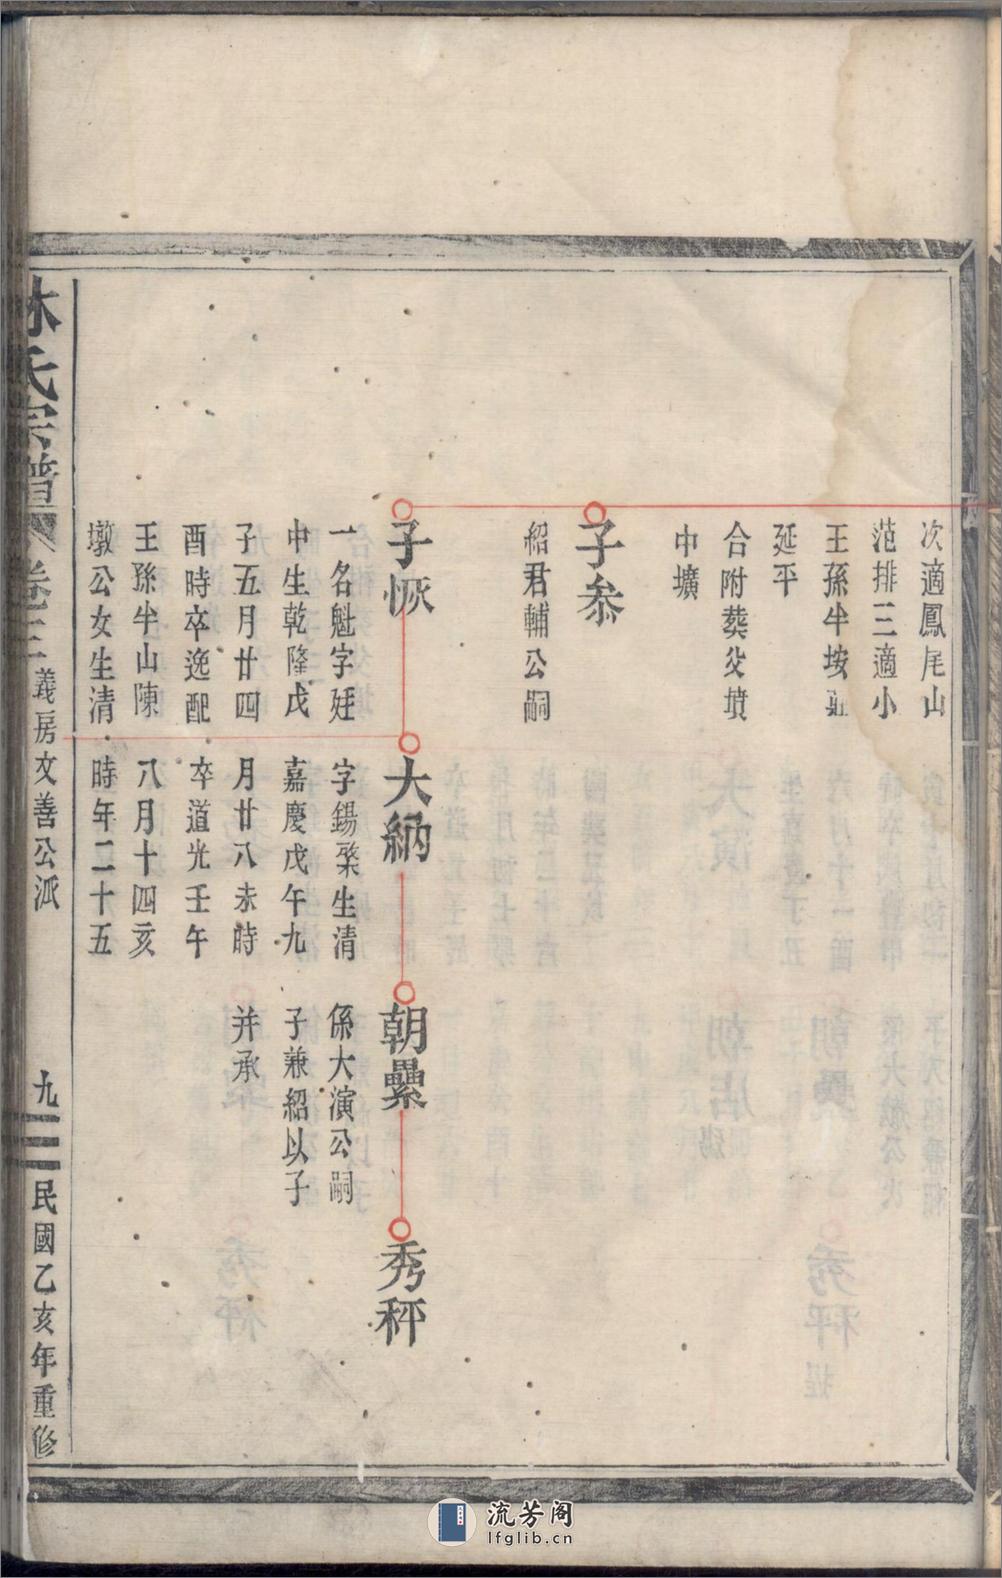 次適鳳尾山
范排三適小
王孫半垵
延平
合附葬父墳
中壙
子叅
紹君輔公嗣
子恢
一名魁字廷
中生乾隆戊
子五月廿四
酉時卒逸配
王孫半山陳
墩公女生清
大納
字錫棨生清
嘉慶戊午九
月廿八未時
卒道光壬午
八月十四亥
時年二十五
朝纍
係大演公嗣
子兼紹以子
并承
秀秤
林氏宗譜
卷三
義房文善公派
九
民國乙亥年重修
流芳阁
lfglib.cn